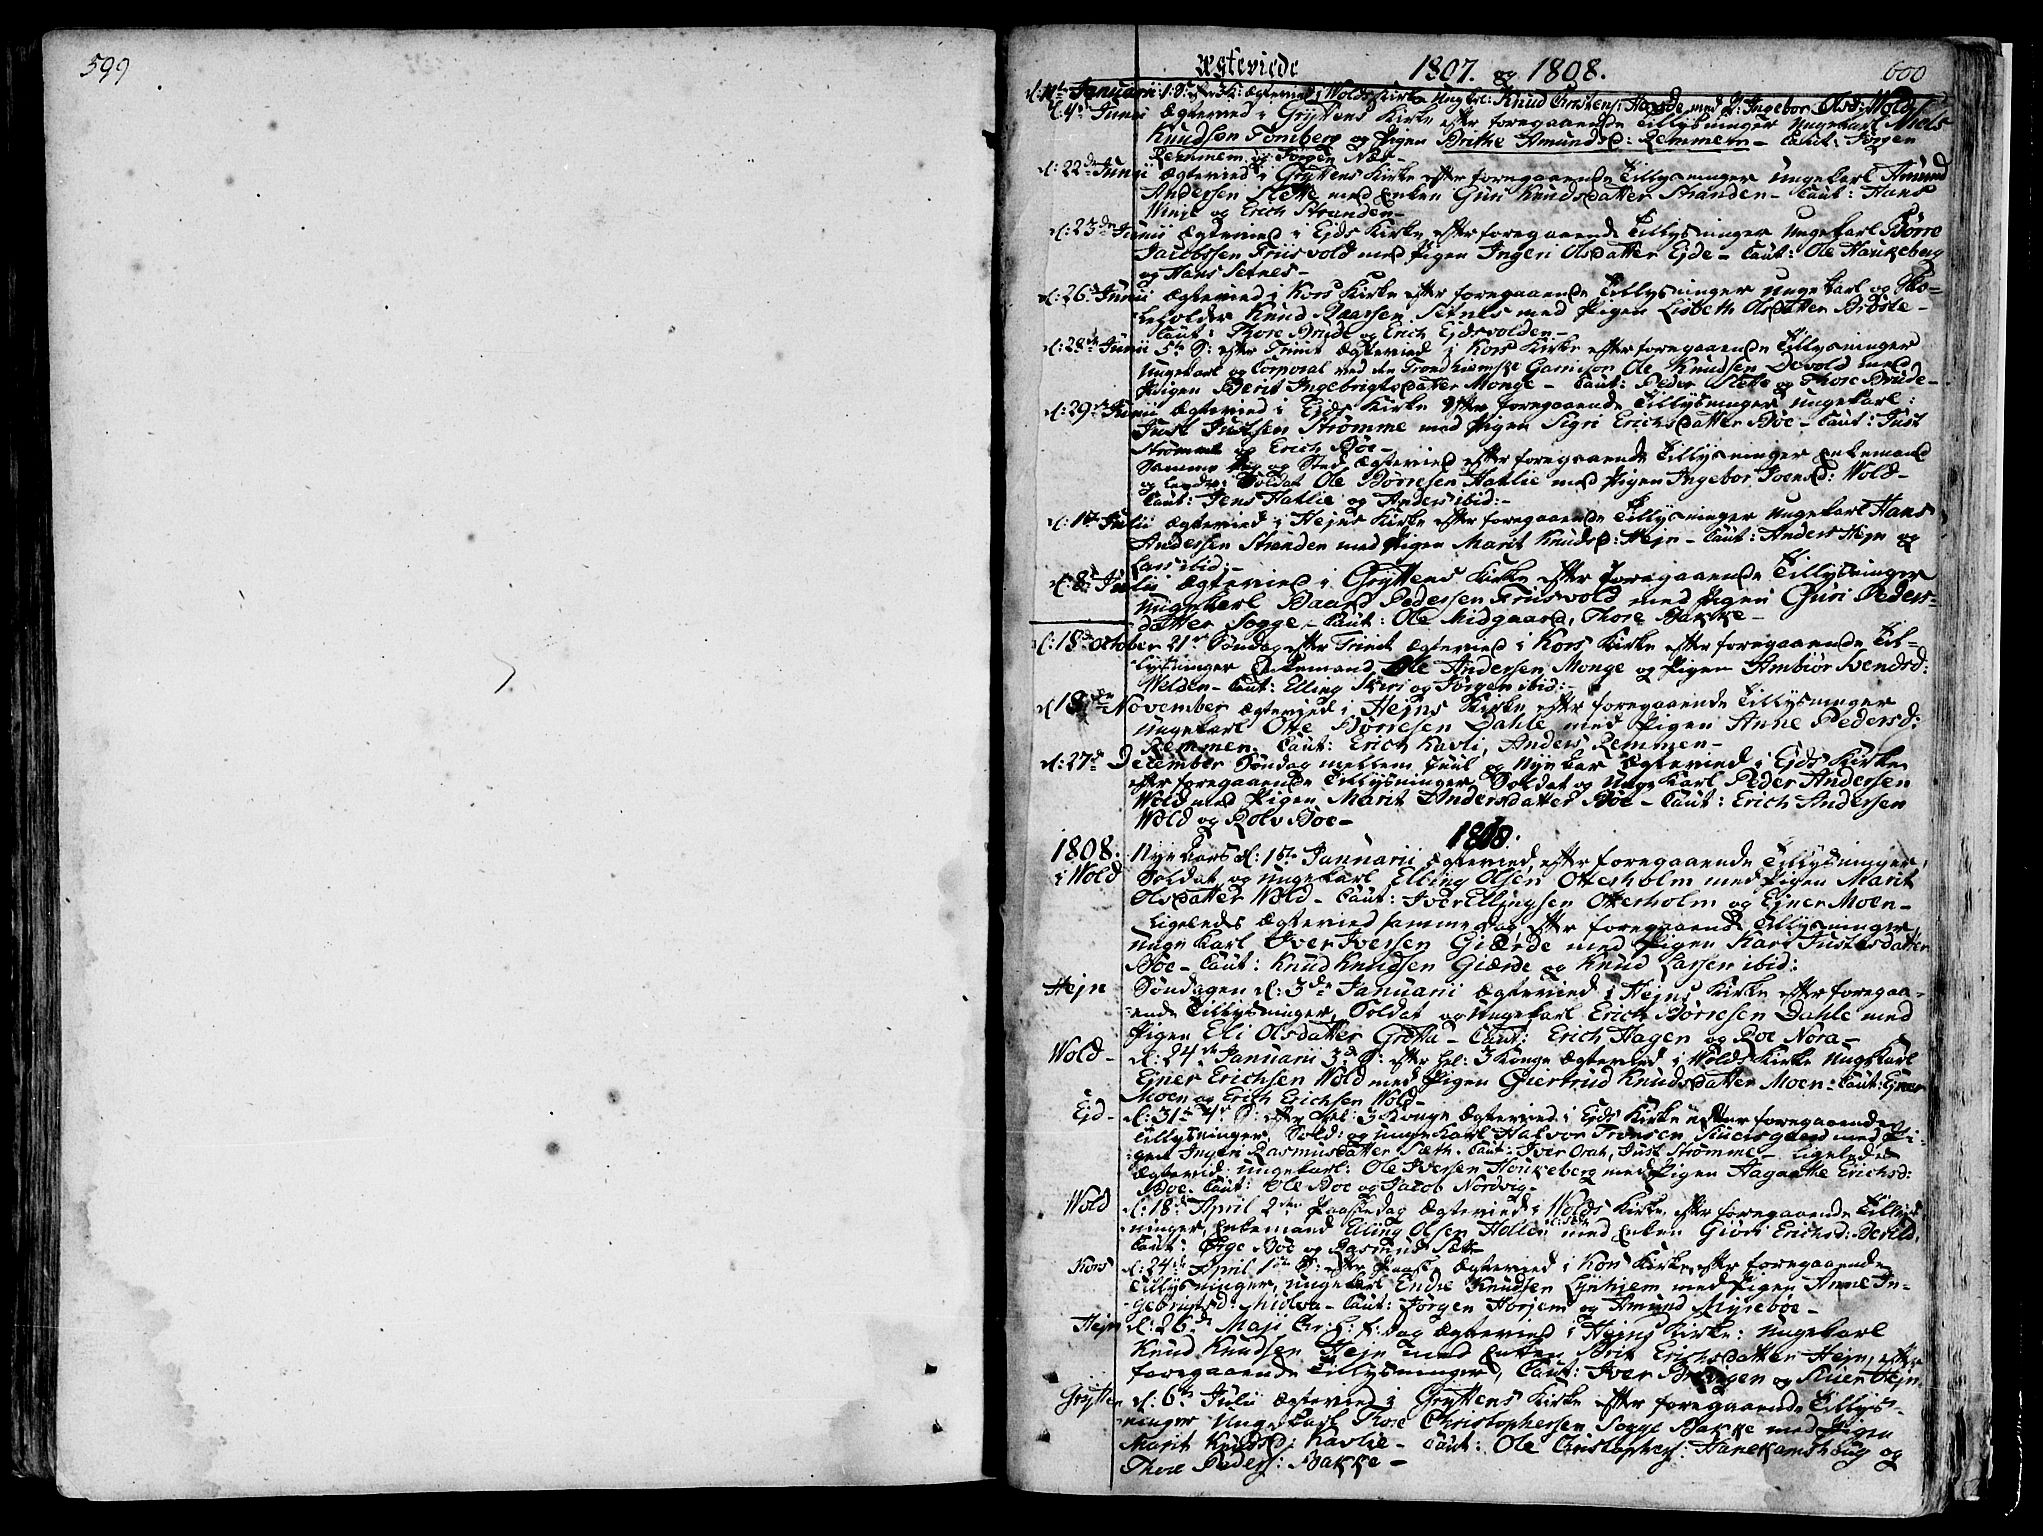 599
Ægteviede 1807. og 1808. 600
d: 4de Junii Ægteviede i Gryttens Kirke efter foregaaende Tillysninger Ungekarl Niels
Knudsen Tomberg og Pigen Brithe Amundsd: Remmem - Caut: Jørgen
Remmem og Jørgen Næs -
d: 22de Junii Ægteviede i Gryttens Kirke efter foregaaende Tillysninger Ungekarl Amund
Andersen Slette med Enken Guri Knudsdatter Stranden - Caut: Hans
Winje og Erich Stranden -
d: 23de Junii Ægteviede i Ejds Kirke efter foregaaende Tillysninger Ungekarl Børre
Jacobsen Friisvold med Pigen Ingeri Olsdatter Ejde - Caut: Ole Haukeberg
og Hans Setnes -
d: 26de Junii Ægteviede i Kors Kirke efter foregaaende Tillysninger Ungekarl og Sko-
leholder Knud Baarsen Setnes med Pigen Lisbeth Olsdatter Brøste -
Caut: Thore Brude og Erich Ejdsvolden -
d: 28de Junii 5te S: efter Trinit Ægteviede i Kors Kirke efter foregaaende Tillysninger
Ungekarl og Corporal ved den Trondhiemske Garnison Ole Knudsen Devold med
Pigen Berit Ingebrigtsdatter Monge - Caut: Peder Slette og Thore Brude -
d: 29de Junii Ægteviede i Ejds Kirke efter foregaaende Tillysninger Ungekarl:
Just Justsen Strømme med Pigen Sigri Erichsdatter Bøe - Caut: Just
Strømme og Erich Bøe -
Samme Dag og Sted Ægteviede efter foregaaende Tillysninger Enkemand
og Soldat Ole Børresen Hatlie med Pigen Ingebor Joensd: Wold -
Caut: Jens Hatlie og Anders ibid: -
d: 1ste Julii Ægteviede i Hejns Kirke efter foregaaende Tillysninger Ungekarl Hans
Andersen Stranden med Pigen Marit Knudsd: Hejn - Caut: Anders Hejn og
Lars ibid: -
d: 8de Julii Ægteviede i Gryttens Kirke efter foregaaende Tillysninger
Ungekarl Baard Pedersen Friisvold med Pigen Guri Peders-
datter Sogge, - Caut: Ole Midgaard, Thore Bakke -
d: 18de October 21de Søndag efter Trinit Ægteviede i Kors Kirke efter foregaaende Til-
lysninger Enkemand Ole Andersen Monge og Pigen Ambiør Svendsd:
Welden - Caut: Elling Skiri og Jørgen ibid: -
d 18de November Ægteviede i Hejns Kirke efter foregaaende Tillysninger
Ungekarl Otte Børresen Dahle med Pigen Anne Pedersd:
Remmen. Caut: Erich Kavli, Anders Remmen -
d: 27de December Søndag mellem Juul og Nytaar Ægteviede i Ejds Kirke
efter foregaaende Tillysninger, Soldat og Ungekarl Peder Andersen
Wold med Pigen Marit Andersdatter Bøe - Caut: Erich Andersen
Wold og Rolv Bøe -
1808.
1808. Nyetaars d: 1ste Januarii Ægteviede efter foregaaende Tillysninger,
i Wold Soldat og Ungekarl Elling Olsen Otterholm med Pigen Marit
Olsdatter Wold - Caut: Iver Ellingsen Otterholm og Ejner Moen -
Ligeledes Ægteviede samme dag efter foregaaende Tillysninger,
Unge Karl Iver Iversen Giærde med Pigen Kari Justesdatter
Bøe - Caut: Knud Knudsen Giærde og Knud Larsen ibid:
Hejn Søndagen d: 3de Januarii Ægteviede i Hejns Kirke efter foregaa-
ende Tillysninger, Soldat og Ungekarl Erich Børresen Dahle med
Pigen Eli Olsdatter Grøtta - Caut: Erich Hagen og Boe Nora -
Wold - d: 24de Januarii 3de S: efter Hel: 3 Konge Ægteviede i Wolds Kirke Ungekarl
Ejner Erichsen Wold med Pigen Giertrud Knudsdatter Moen - Caut: Ejner
Moen og Erich Erichsen Wold -
Ejd - d: 31te 4de S: efter Hel: 3 Konge Ægteviede i Ejds Kirke efter foregaaende
Tillysninger Sold: og Ungekarl Halvor Tronsen med Pi-
gen Ingeri Rasmusdatter Sæth. Caut: Iver Orah, Just Strømme - Ligeledes
Ægteviede Ungekarl: Ole Iversen Houkeberg med Pigen Hagaathe Erichsd:
Bøe - Caut: Ole Bøe og Jacob Nordvig -
Wold d: 18de April 2den Paaskedag Ægteviede i Wolds Kirke, efter foregaaende Tillys-
ninger, Enkemand Elling Olsen Holle med Enken Giøri Erichsd: Berild,
Caut: Ørge Bøe og Rasmus Sæt -
Kors d: 24de April 1ste S: efter Paaske Ægteviede i Kors Kirke, efter foregaaende
Tillysninger, Ungekarl Endre Knudsen Lynhiem med Pigen Anne In-
gebrigtsd: Midlva - Caut: Jørgen Horjem og Amund Myrebøe -
Hejn d: 26de Maji Chr: H: f: dag Ægteviede i Hejns Kirke: Ungekarl
Knud Knudsen Hejn med Enken Brit Erichsdatter Hejn, efter
foregaaende Tillysninger, Caut: Iver og Siver Hejn.
Grytten d: 6te Julii Ægteviede i Gryttens Kirke efter foregaaende Tillys-
ninger Ungekarl Thore Christophersen Sogge Bakke med Pigen
Marit Knudsd: Kavlie - Caut: Ole Christophers: Hanekamshoug og
Thore Peders: Bakke -